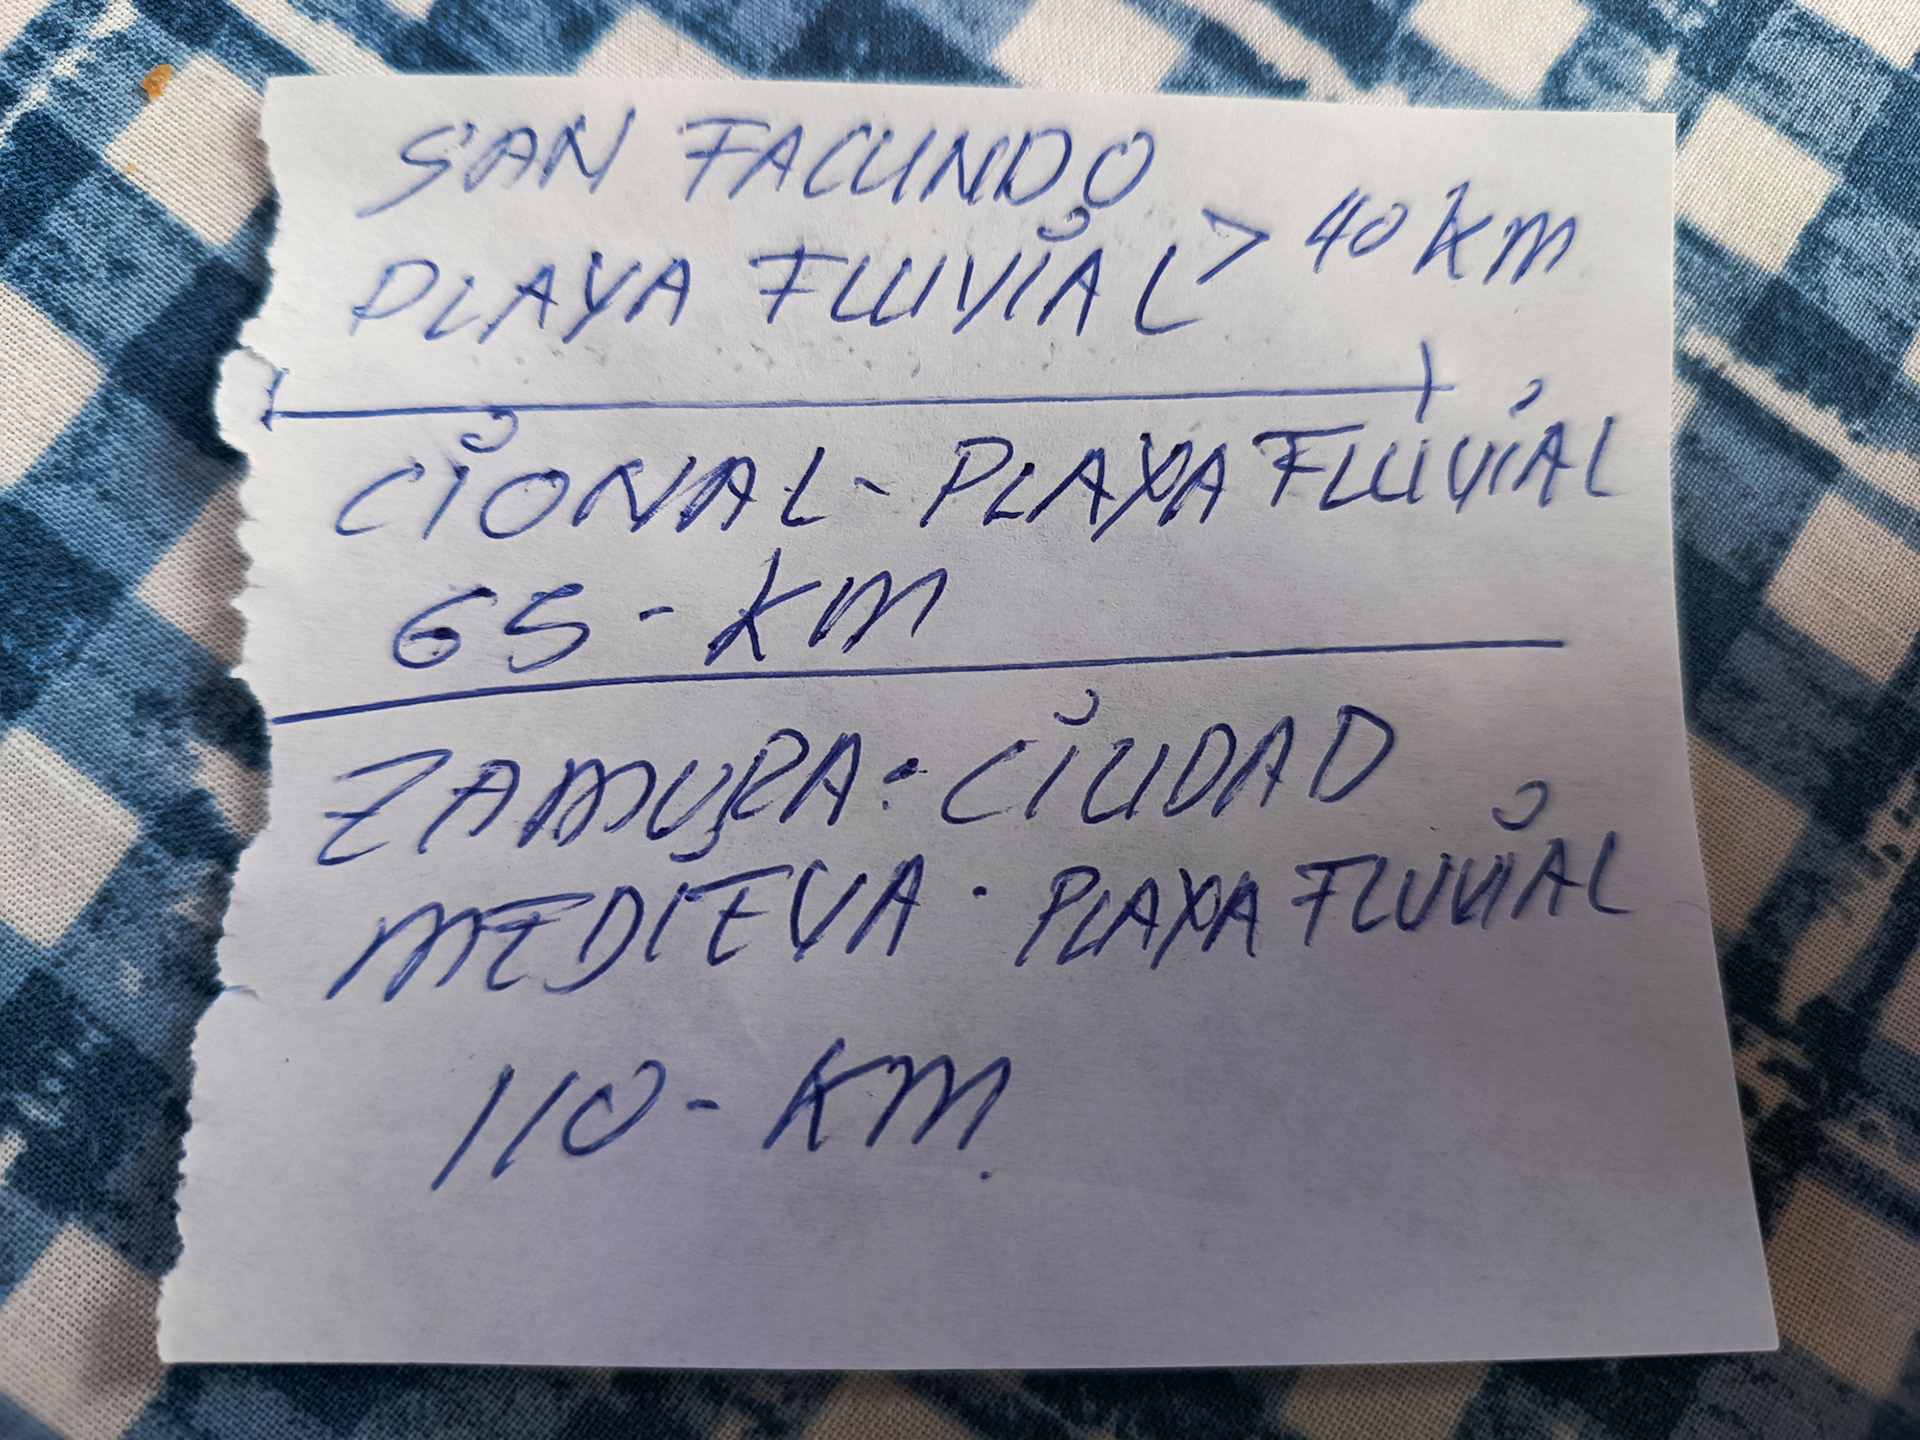 SAN FACUNDO
PLAYA FLUVIAL > 40 KM
CIONAL - PLAYA FLUVIAL
65 - KM
ZAMURA: CIUDAD
MEDIEVA . PLAYA FLUVIAL
110 - KM.